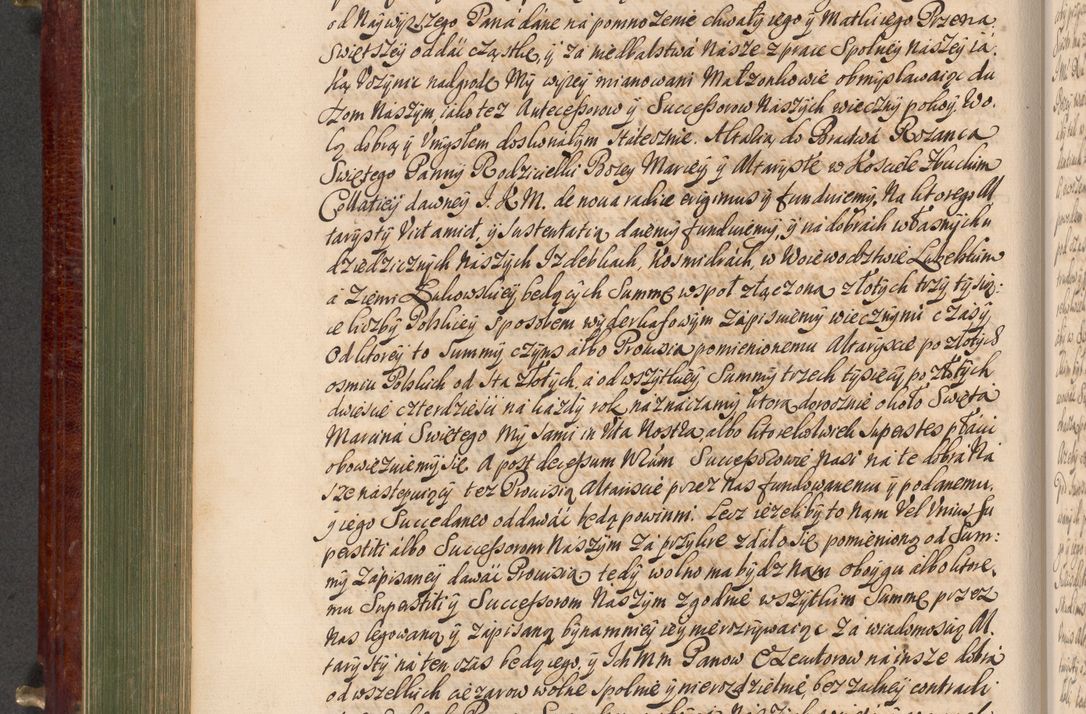 od Naywyższego Pana dane na pomnożenie chwały iego y Matki iego Przena
Swiętszey oddać cząstkę, y za niedbalstwa Nasze z prace Spolney Naszey ia,
ką Uczynić nadgrodę My wyżey mianowani Małzonkowie obmyslawaiąc du
szom Naszym, iako też Antecessorow y Successorow Naszych wieczny pokoy, Wo,
lą dobrą y Umysłem doskonałym statecznie. Altarią do Bractwa Rozanca
Swiętego Panny Rodzicielki Bozey Maryey y Altarystę w Kosciele Huckim
Collatiey dawney J. K M. de nova radice erigimus y funduiemy, Na ktorego Al
tarysty Victum iet y Sustentatią daiemy funduiemy, y na dobrach własnych
dziedzicznych Naszych Izdebkach, Kosmidrach, w Woiewodztwie Lubelskim
a Ziemi Łukowskiey, będących Summę wespoł złączoną złotych trzy tysią:
ce liczby Polskiey sposobem wyderkafowym zapisuiemy wiecznymi czasy
Od ktorey to Summy czynsz albo Prouisią pomienionemu Altaryscie po złotych
osmiu Polskich od Sta Złotych, a od wszytkiey Summy trzech tysięcy po złotych
dwieście czterdzieści na każdy rok naznaczamy ktorą dorocznie około Swięta
Marcina Swiętego My sami in Vita Nostra albo ktorekolwiek superstes płacić
obowięzuiemy się A post decessum Nrum Successorowie Nasi na te dobra Na
sze następuiący też Prouisią Altarisćie przez Nas fundowanemu y podanemu,
y iego Succedaneo oddawać będą powinni. Lecz ieżeliby to Nam Vel Unius Su
perstiti albo Successorom Naszym za przykre zdało się, pomienioną od Sum:
my Zapisaney dawać Prouisią tedy wolno ma bydz Nam oboygu albo ktore,
mu Superstiti y Successorom Naszym zgodnie wszytkim Summę przez
Nas legowaną y zapisaną bynamniey iey nierozrywaiąc Za wiadomoscią Al.
tarysty na ten czas będącego, y Ich Mm Panow Exekutorow na insze dobra
od wszelkich ciężarow wolne spolnie y nierozdzielnie, bez zadney contradi